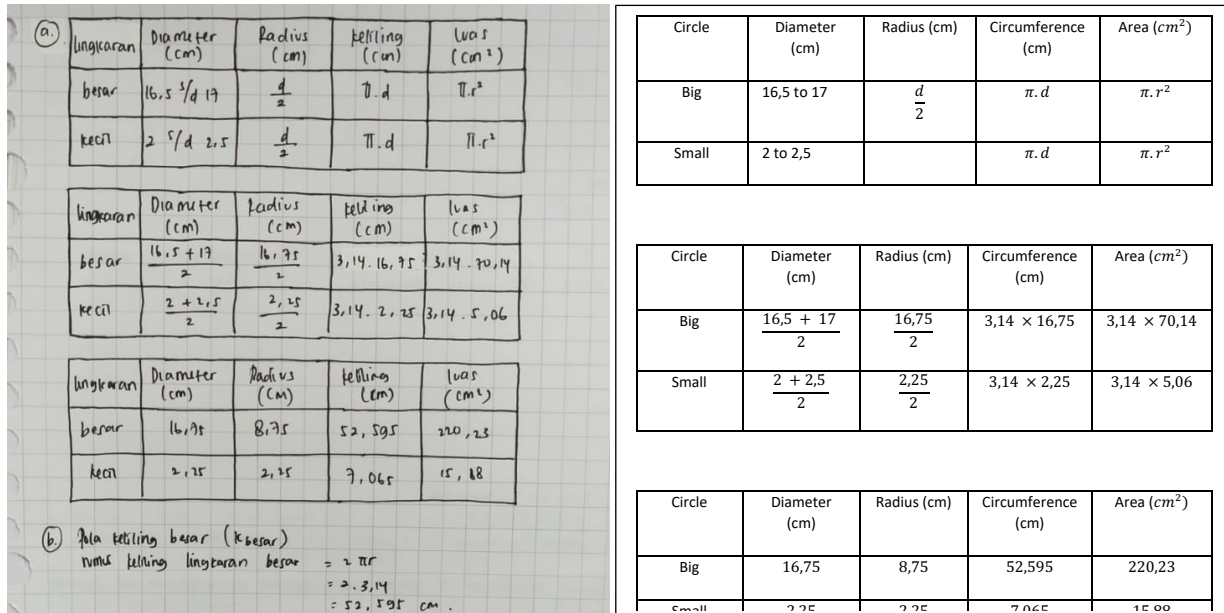 a.
lingkaran Diameter (cm) Radius (cm) keliling (cm) luas (cm²)
besar 16,5 s/d 17 d/2 π.d π.r²
kecil 2 s/d 2,5 d/2 π.d π.r²
lingkaran Diameter (cm) Radius (cm) keliling (cm) luas (cm²)
besar 16,5 + 17 / 2 16,75 / 2 3,14 . 16,75 3,14 . 70,14
kecil 2 + 2,5 / 2 2,25 / 2 3,14 . 2,25 3,14 . 5,06
lingkaran Diameter (cm) Radius (cm) keliling (cm) luas (cm²)
besar 16,75 8,75 52,595 220,23
kecil 2,25 2,25 7,065 15,88
b. Pola keliling besar (K besar)
rumus keliling lingkaran besar = 2 πr
= 2 . 3,14
= 52,595 cm.
Circle Diameter (cm) Radius (cm) Circumference (cm) Area (cm²)
Big 16,5 to 17 d/2 π.d π.r²
Small 2 to 2,5 π.d π.r²
Circle Diameter (cm) Radius (cm) Circumference (cm) Area (cm²)
Big 16,5 + 17 / 2 16,75 / 2 3,14 × 16,75 3,14 × 70,14
Small 2 + 2,5 / 2 2,25 / 2 3,14 × 2,25 3,14 × 5,06
Circle Diameter (cm) Radius (cm) Circumference (cm) Area (cm²)
Big 16,75 8,75 52,595 220,23
Small 2,25 2,25 7,065 15,88